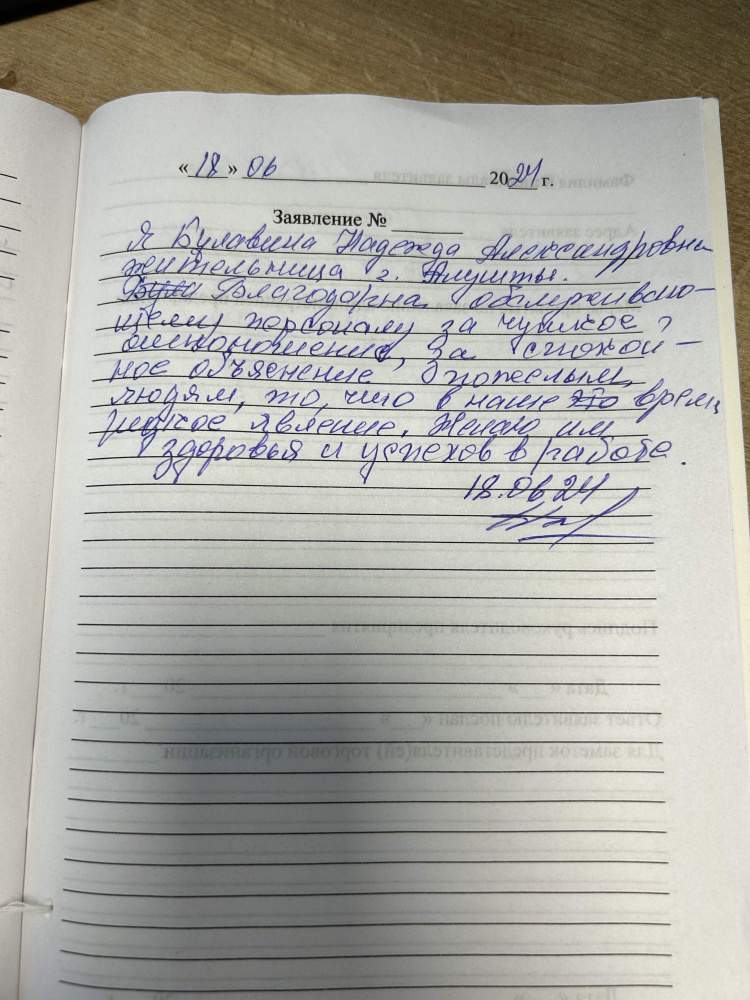 «18» 06 2024 г.
Заявление № ____
Я Булавина Надежда Александровна
жительница г. Алушты.
Благодарна обслуживаю-
щему персоналу за чуткое
отношение, за спокой-
ное объяснение пожелым
людям, то, что в наше время
редкое явление. Желаю им
здоровья и успехов в работе.
18.06.24